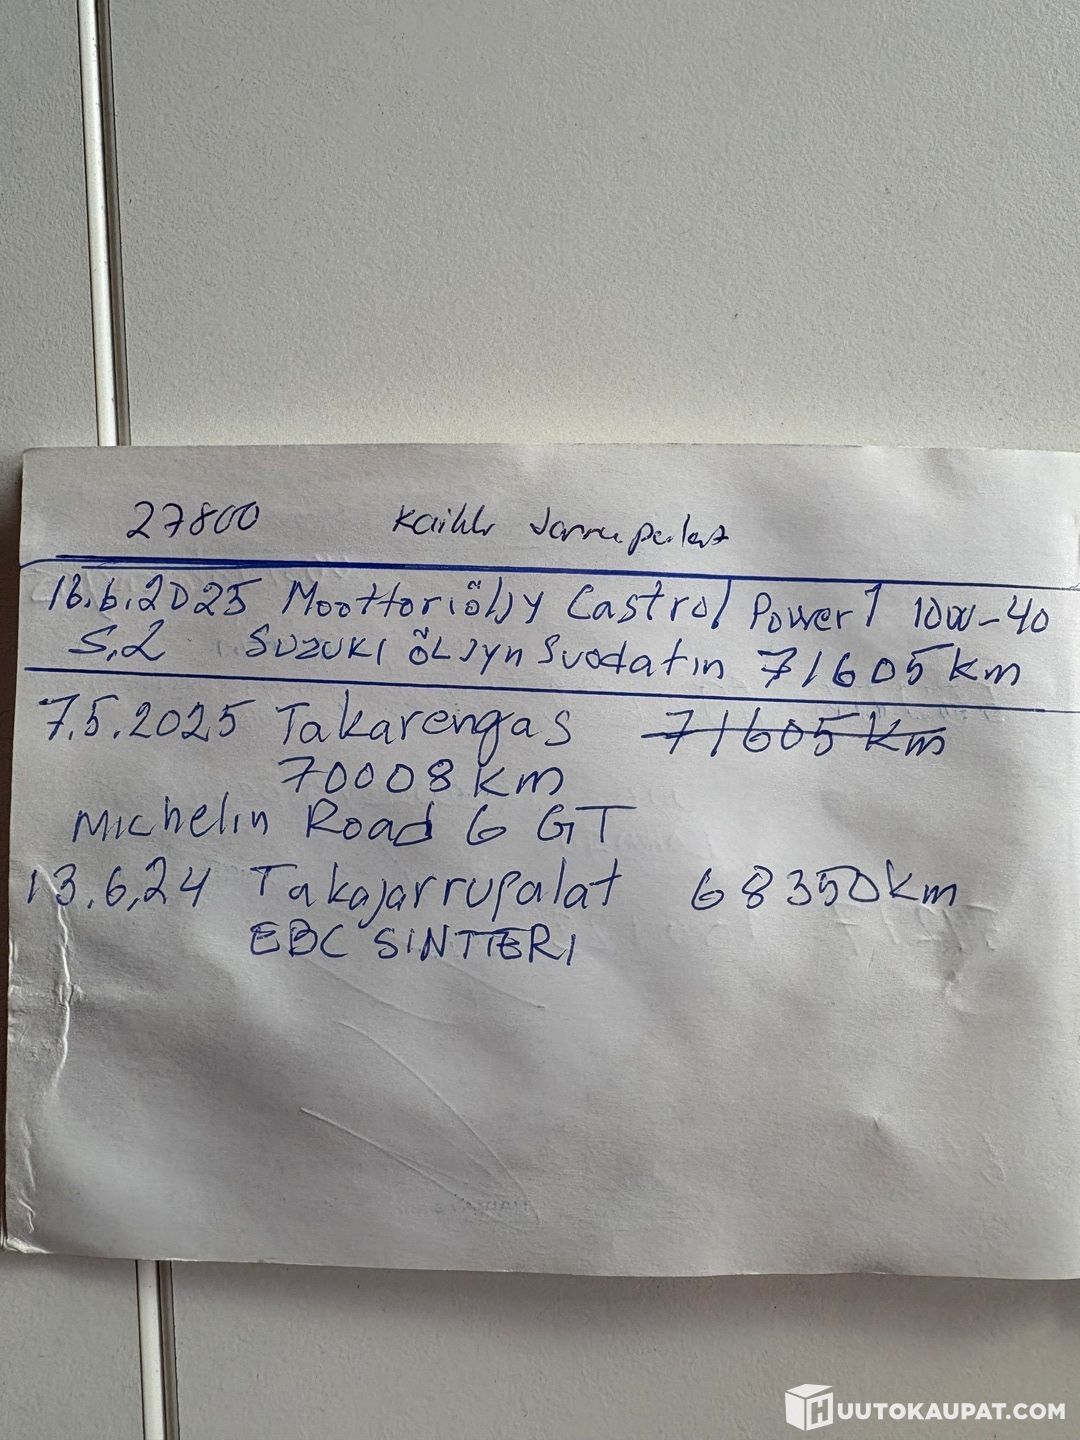 27800 Kaikki Jarrupalat
16.6.2025 Moottoriöljy Castrol Power 1 10W-40
5,2 SUZUKI ÖLJyn Suodatin 71605 km
7.5.2025 Takarengas 71605 km
70008 km
Michelin Road 6 GT
13.6,24 Takajarrupalat 68350km
EBC SINTTERI
HUUTOKAUPAT.COM